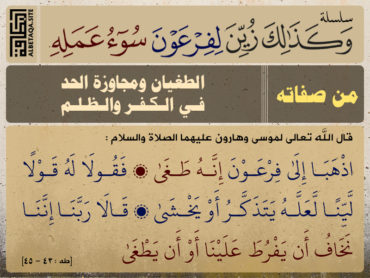 سلسلة
وَكَذَٰلِكَ زُيِّنَ لِفِرْعَوْنَ سُوٓءُ عَمَلِهِ
البطاقة
ALBETAQA.SITE
من صفاته
الطغيان ومجاوزة الحد
في الكفر والظلم
قال الله تعالى لموسى وهارون عليهما الصلاة والسلام :
اذْهَبَا إِلَىٰ فِرْعَوْنَ إِنَّهُ طَغَىٰ فَقُولَا لَهُ قَوْلًا
لَّيِّنًا لَّعَلَّهُ يَتَذَكَّرُ أَوْ يَخْشَىٰ قَالَا رَبَّنَا إِنَّنَا
نَخَافُ أَن يَفْرُطَ عَلَيْنَا أَوْ أَن يَطْغَىٰ
[طه : ٤٣ - ٤٥]